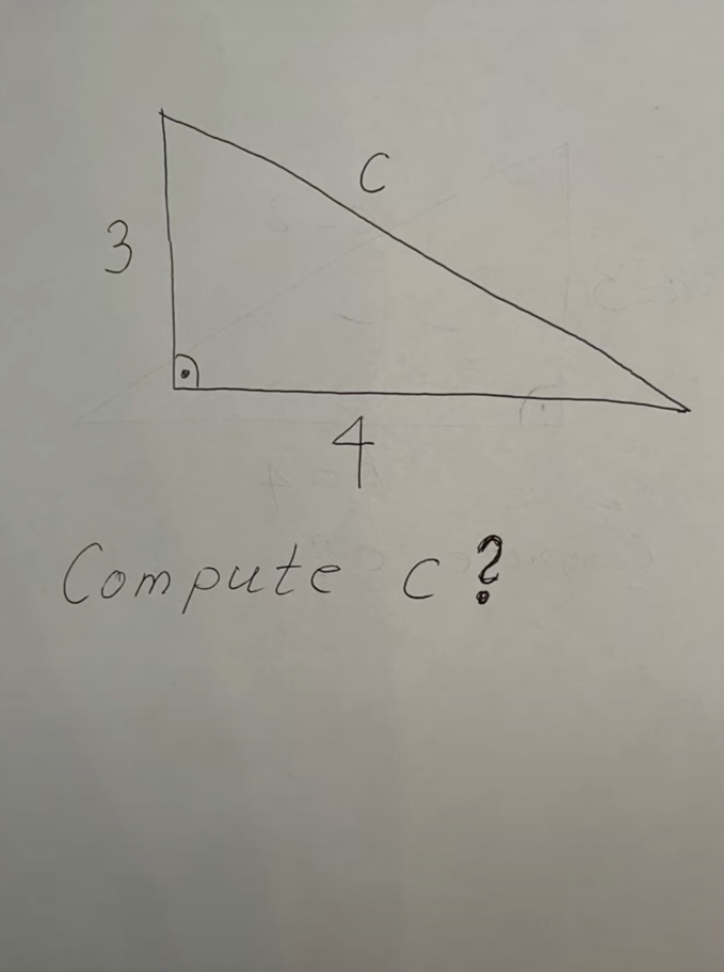 C
3
4
Compute c?